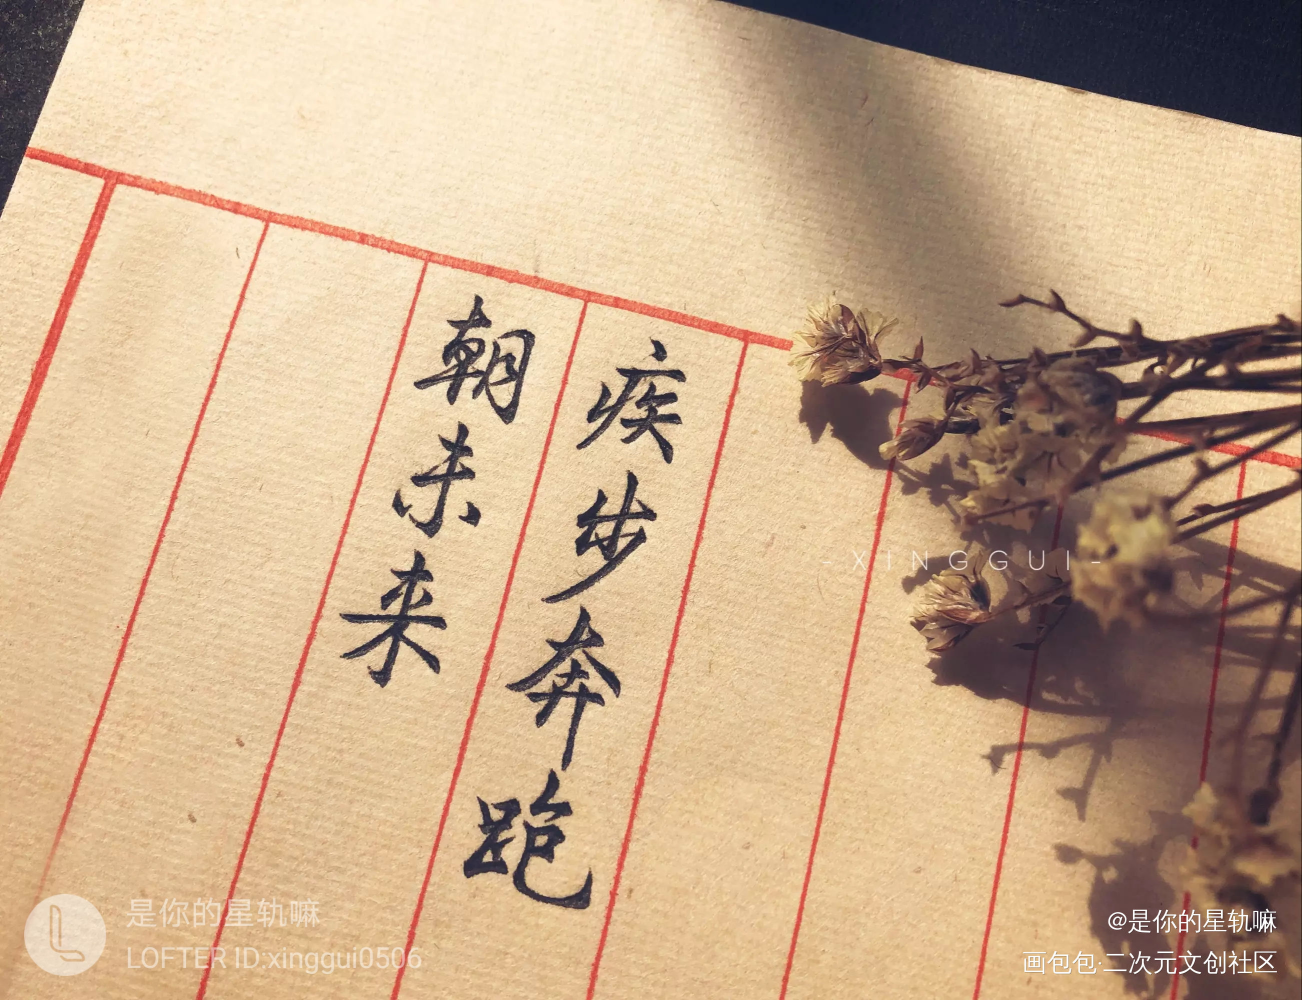 疾步奔跑
朝未来
- XINGGUI -
是你的星轨嘛
LOFTER ID:xinggui0506
@是你的星轨嘛
画包包·二次元文创社区